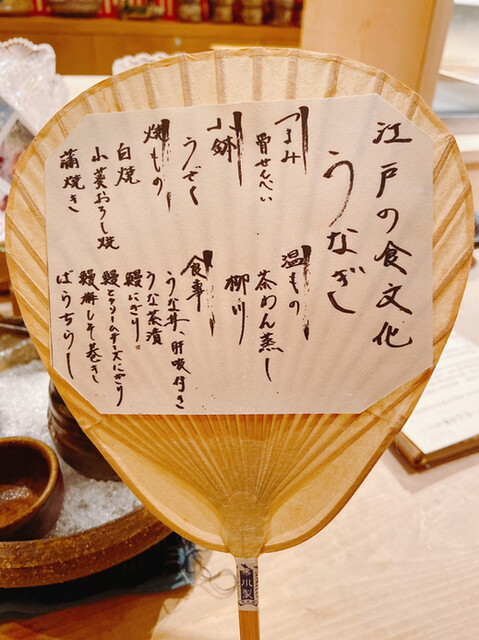 江戸の食文化
うなぎ
つまみ
骨せんべい
小鉢
うざく
焼もの
白焼
小菱おろし焼
蒲焼き
温もの
茶わん蒸し
柳川
食事
うな丼、肝吸付き
うな茶漬
鰻にぎり。
鰻とクリームチーズにぎり
鰻梅しそ巻き
ばらちらし
川製